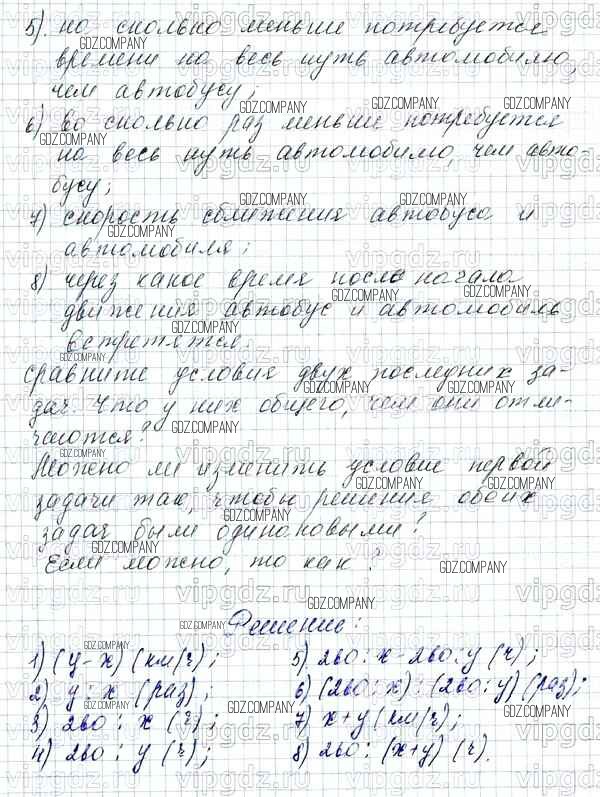 5). на сколько меньше потребуется
времени на весь путь автомобилю,
чем автобусу;
6) во сколько раз меньше потребуется
на весь путь автомобилю, чем авто-
бусу;
7) скорость сближения автобуса и
автомобиля;
8) через какое время после начала
движения автобус и автомобиль
встретятся.
Сравните условия двух последних за-
дач. Что у них общего, чем они отли-
чаются?
Можно ли изменить условие первой
задачи так, чтобы решения обоих
задач были одинаковыми?
Если можно, то как?
Решение:
1) (y-x) (км/ч);
2) y : x (раз);
3) 240 : x (ч);
4) 240 : y (ч);
5) 240 : x - 240 : y (ч);
6) (240 : x) : (240 : y) (раз);
7) x+y (км/ч);
8) 240 : (x+y) (ч).
GDZ.COMPANY
vipgdz.ru